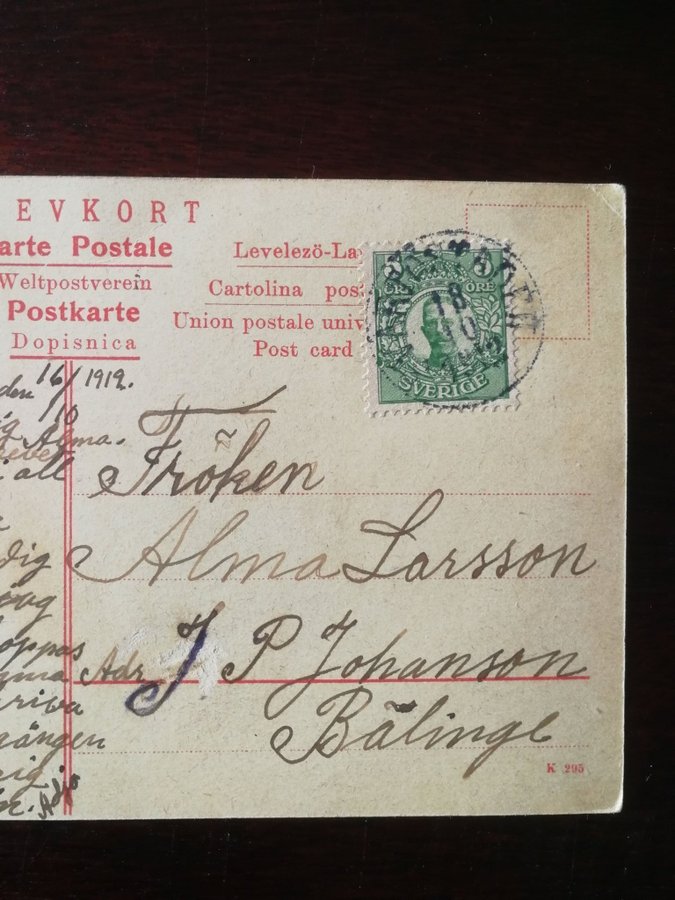 EVKORT
arte Postale
Levelezö-La
Weltpostverein
Cartolina pos
Postkarte
Union postale univ
Dopisnica
Post card
5 5
ÖRE ÖRE
SVERIGE
18
10
den 16/10 1912.
Alma.
all
Fröken
Alma Larsson
Adr. J P Johanson
Bälinge
dig
oppas
riva
gången
K 295